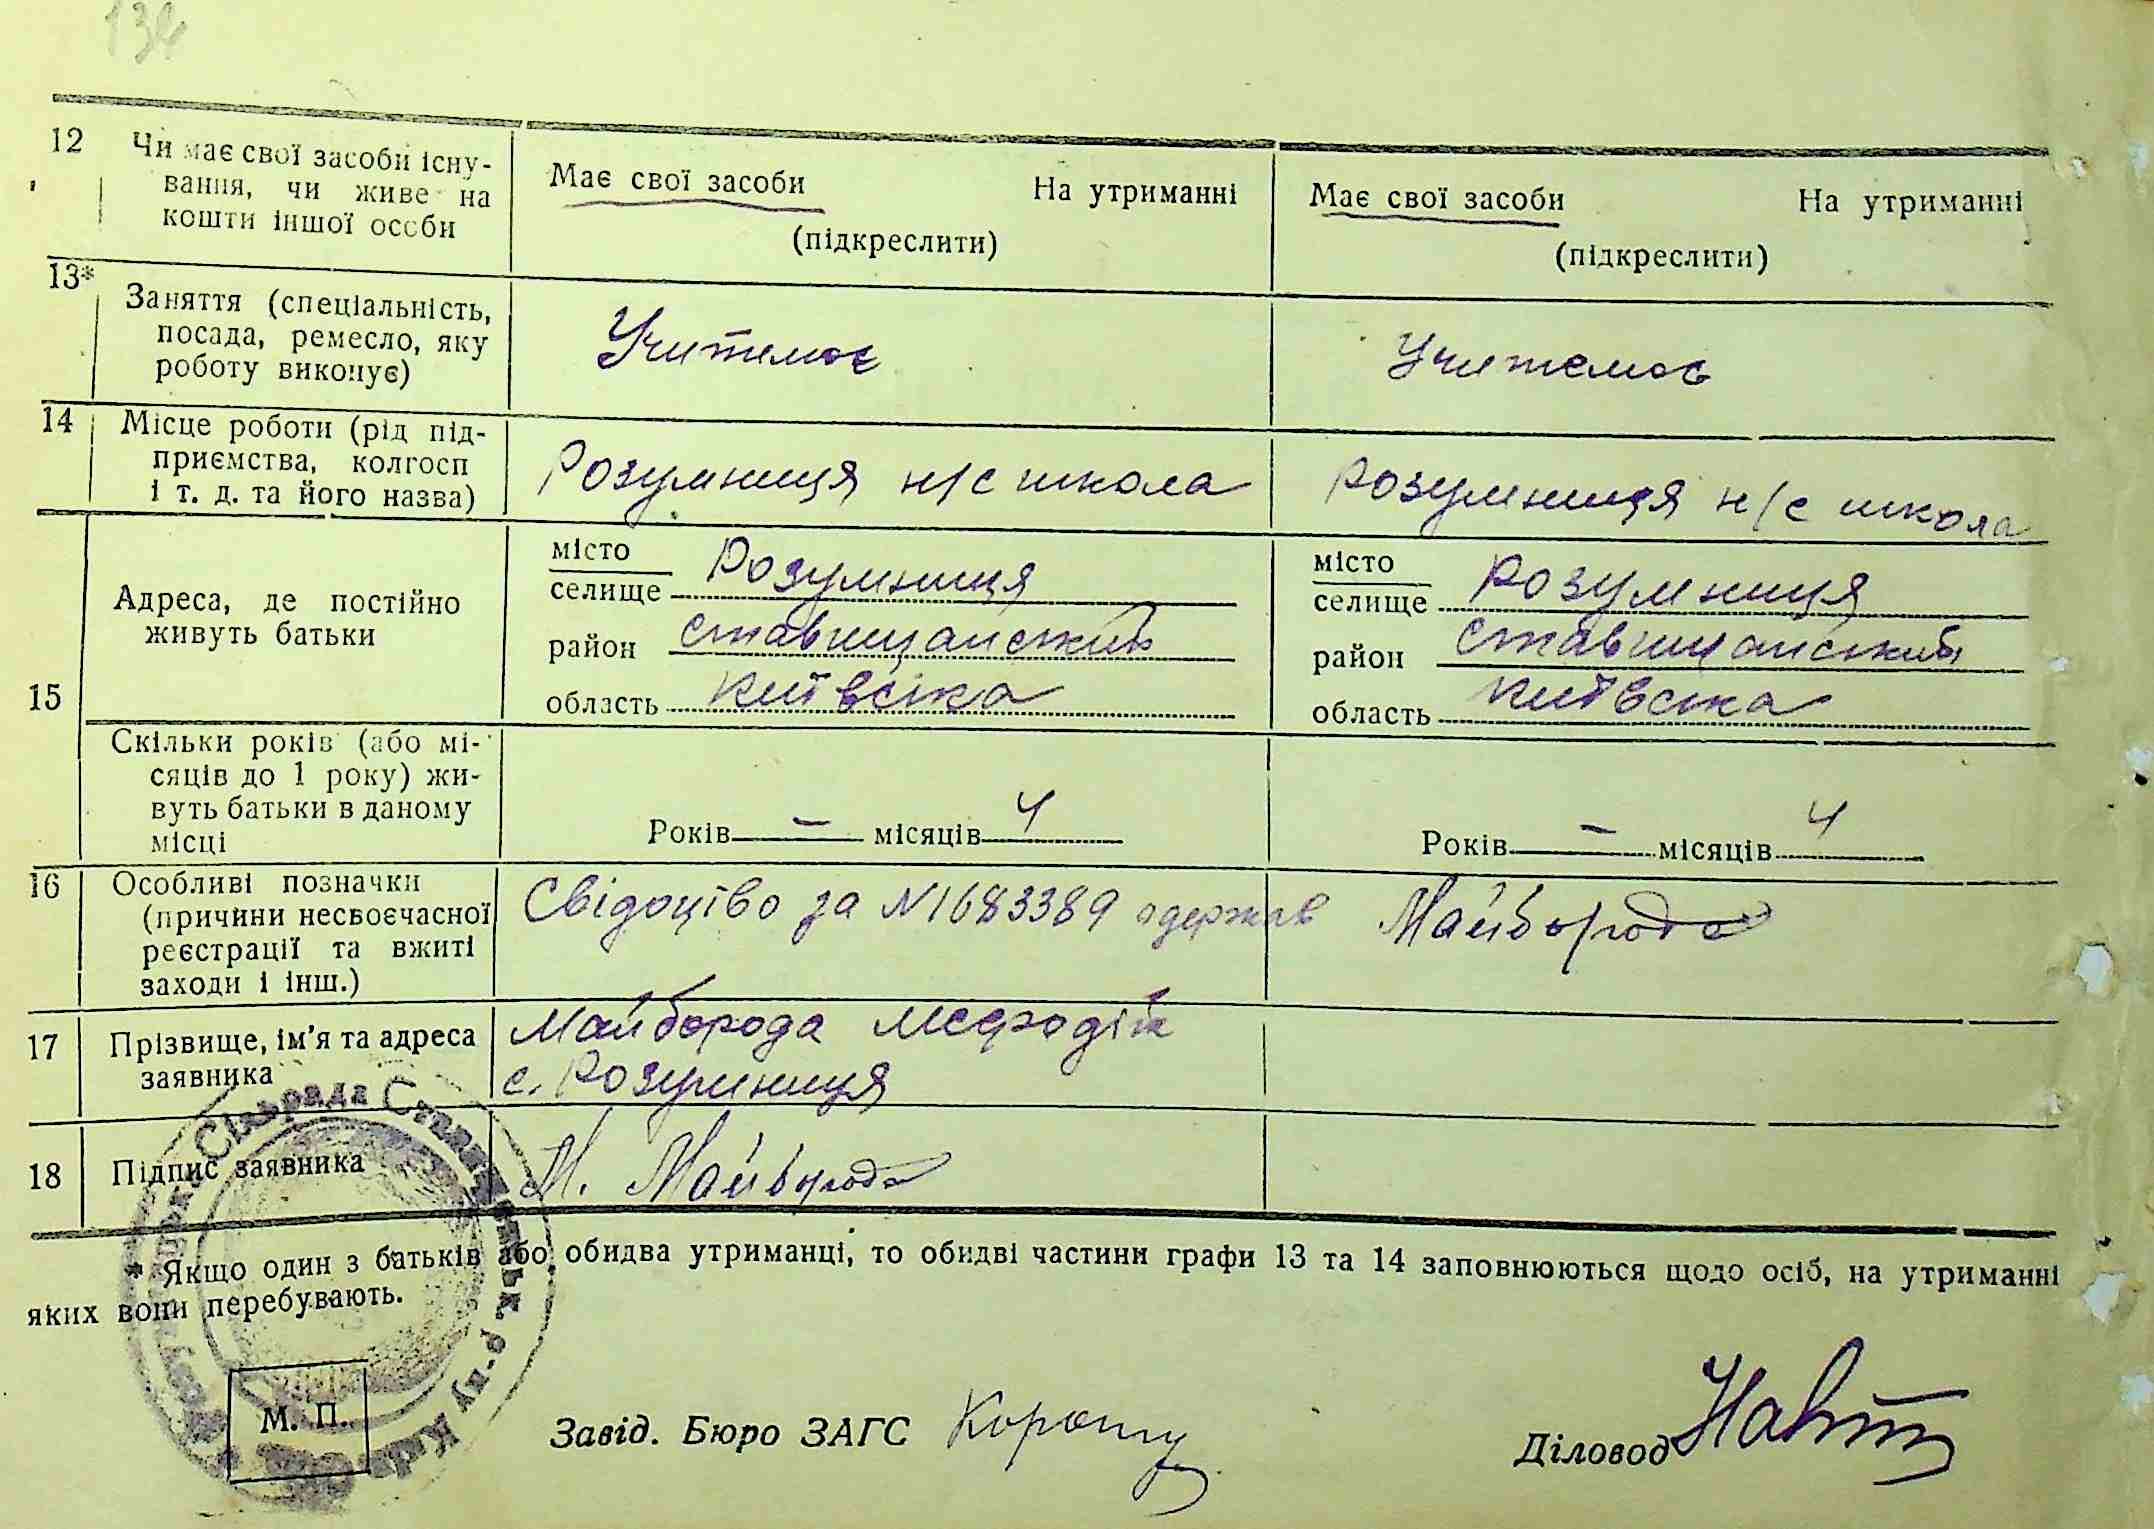 134
12 Чи має свої засоби існу-
вання, чи живе на
кошти іншої особи
Має свої засоби На утриманні
(підкреслити)
Має свої засоби На утриманні
(підкреслити)
13* Заняття (спеціальність,
посада, ремесло, яку
роботу виконує)
Учитель
Учитель
14 Місце роботи (рід під-
приємства, колгосп
і т. д. та його назва)
Розумниця н/с школа
Розумниця н/с школа
15 Адреса, де постійно
живуть батьки
місто
селище Розумниця
район Ставищанський
область Київська
місто
селище Розумниця
район Ставищанський
область Київська
Скільки років (або мі-
сяців до 1 року) жи-
вуть батьки в даному
місці
Років – місяців 4
Років – місяців 4
16 Особливі позначки
(причини несвоєчасної
реєстрації та вжиті
заходи і інш.)
Свідоцтво за №1683389 одержав Майборода
17 Прізвище, ім'я та адреса
заявника
Майборода Мефодій
с. Розумниця
18 Підпис заявника
М. Майборода
* Якщо один з батьків або обидва утриманці, то обидві частини графи 13 та 14 заповнюються щодо осіб, на утриманні
яких вони перебувають.
М. П.
Завід. Бюро ЗАГС
Діловод